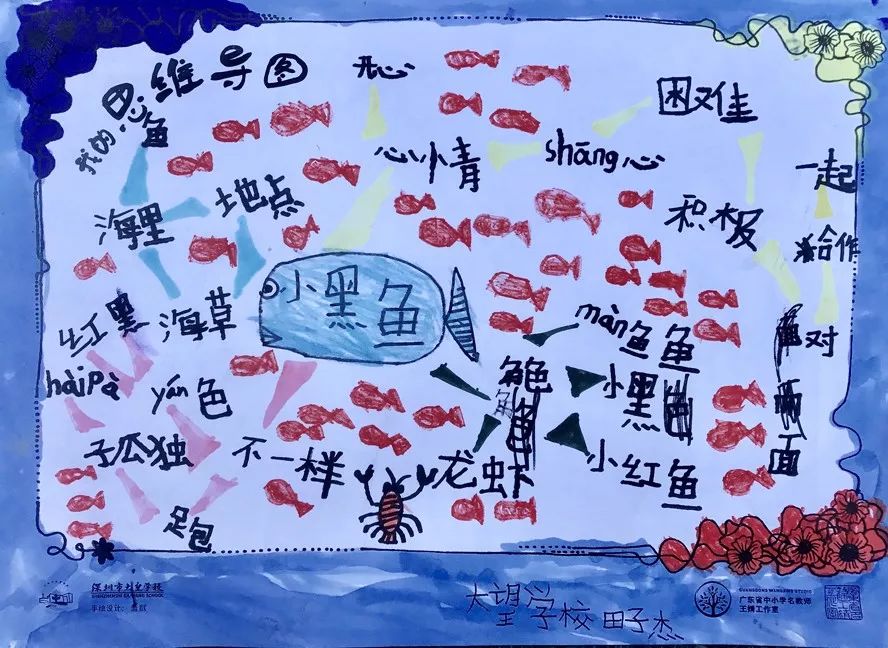 思维导图
我的鱼
海里
地点
海草
小黑鱼
开心
心情
shāng心
困难
积极
一起
合作
面对
红黑
hàipà
yán色
孤独
跑
不一样
龙虾
角色
màn鱼鱼
小黑
小红鱼
大望学校 田子杰
深圳市大望学校
手绘设计：
GUANGDONG WANGJING STUDIO
广东省中小学名教师
王婧工作室